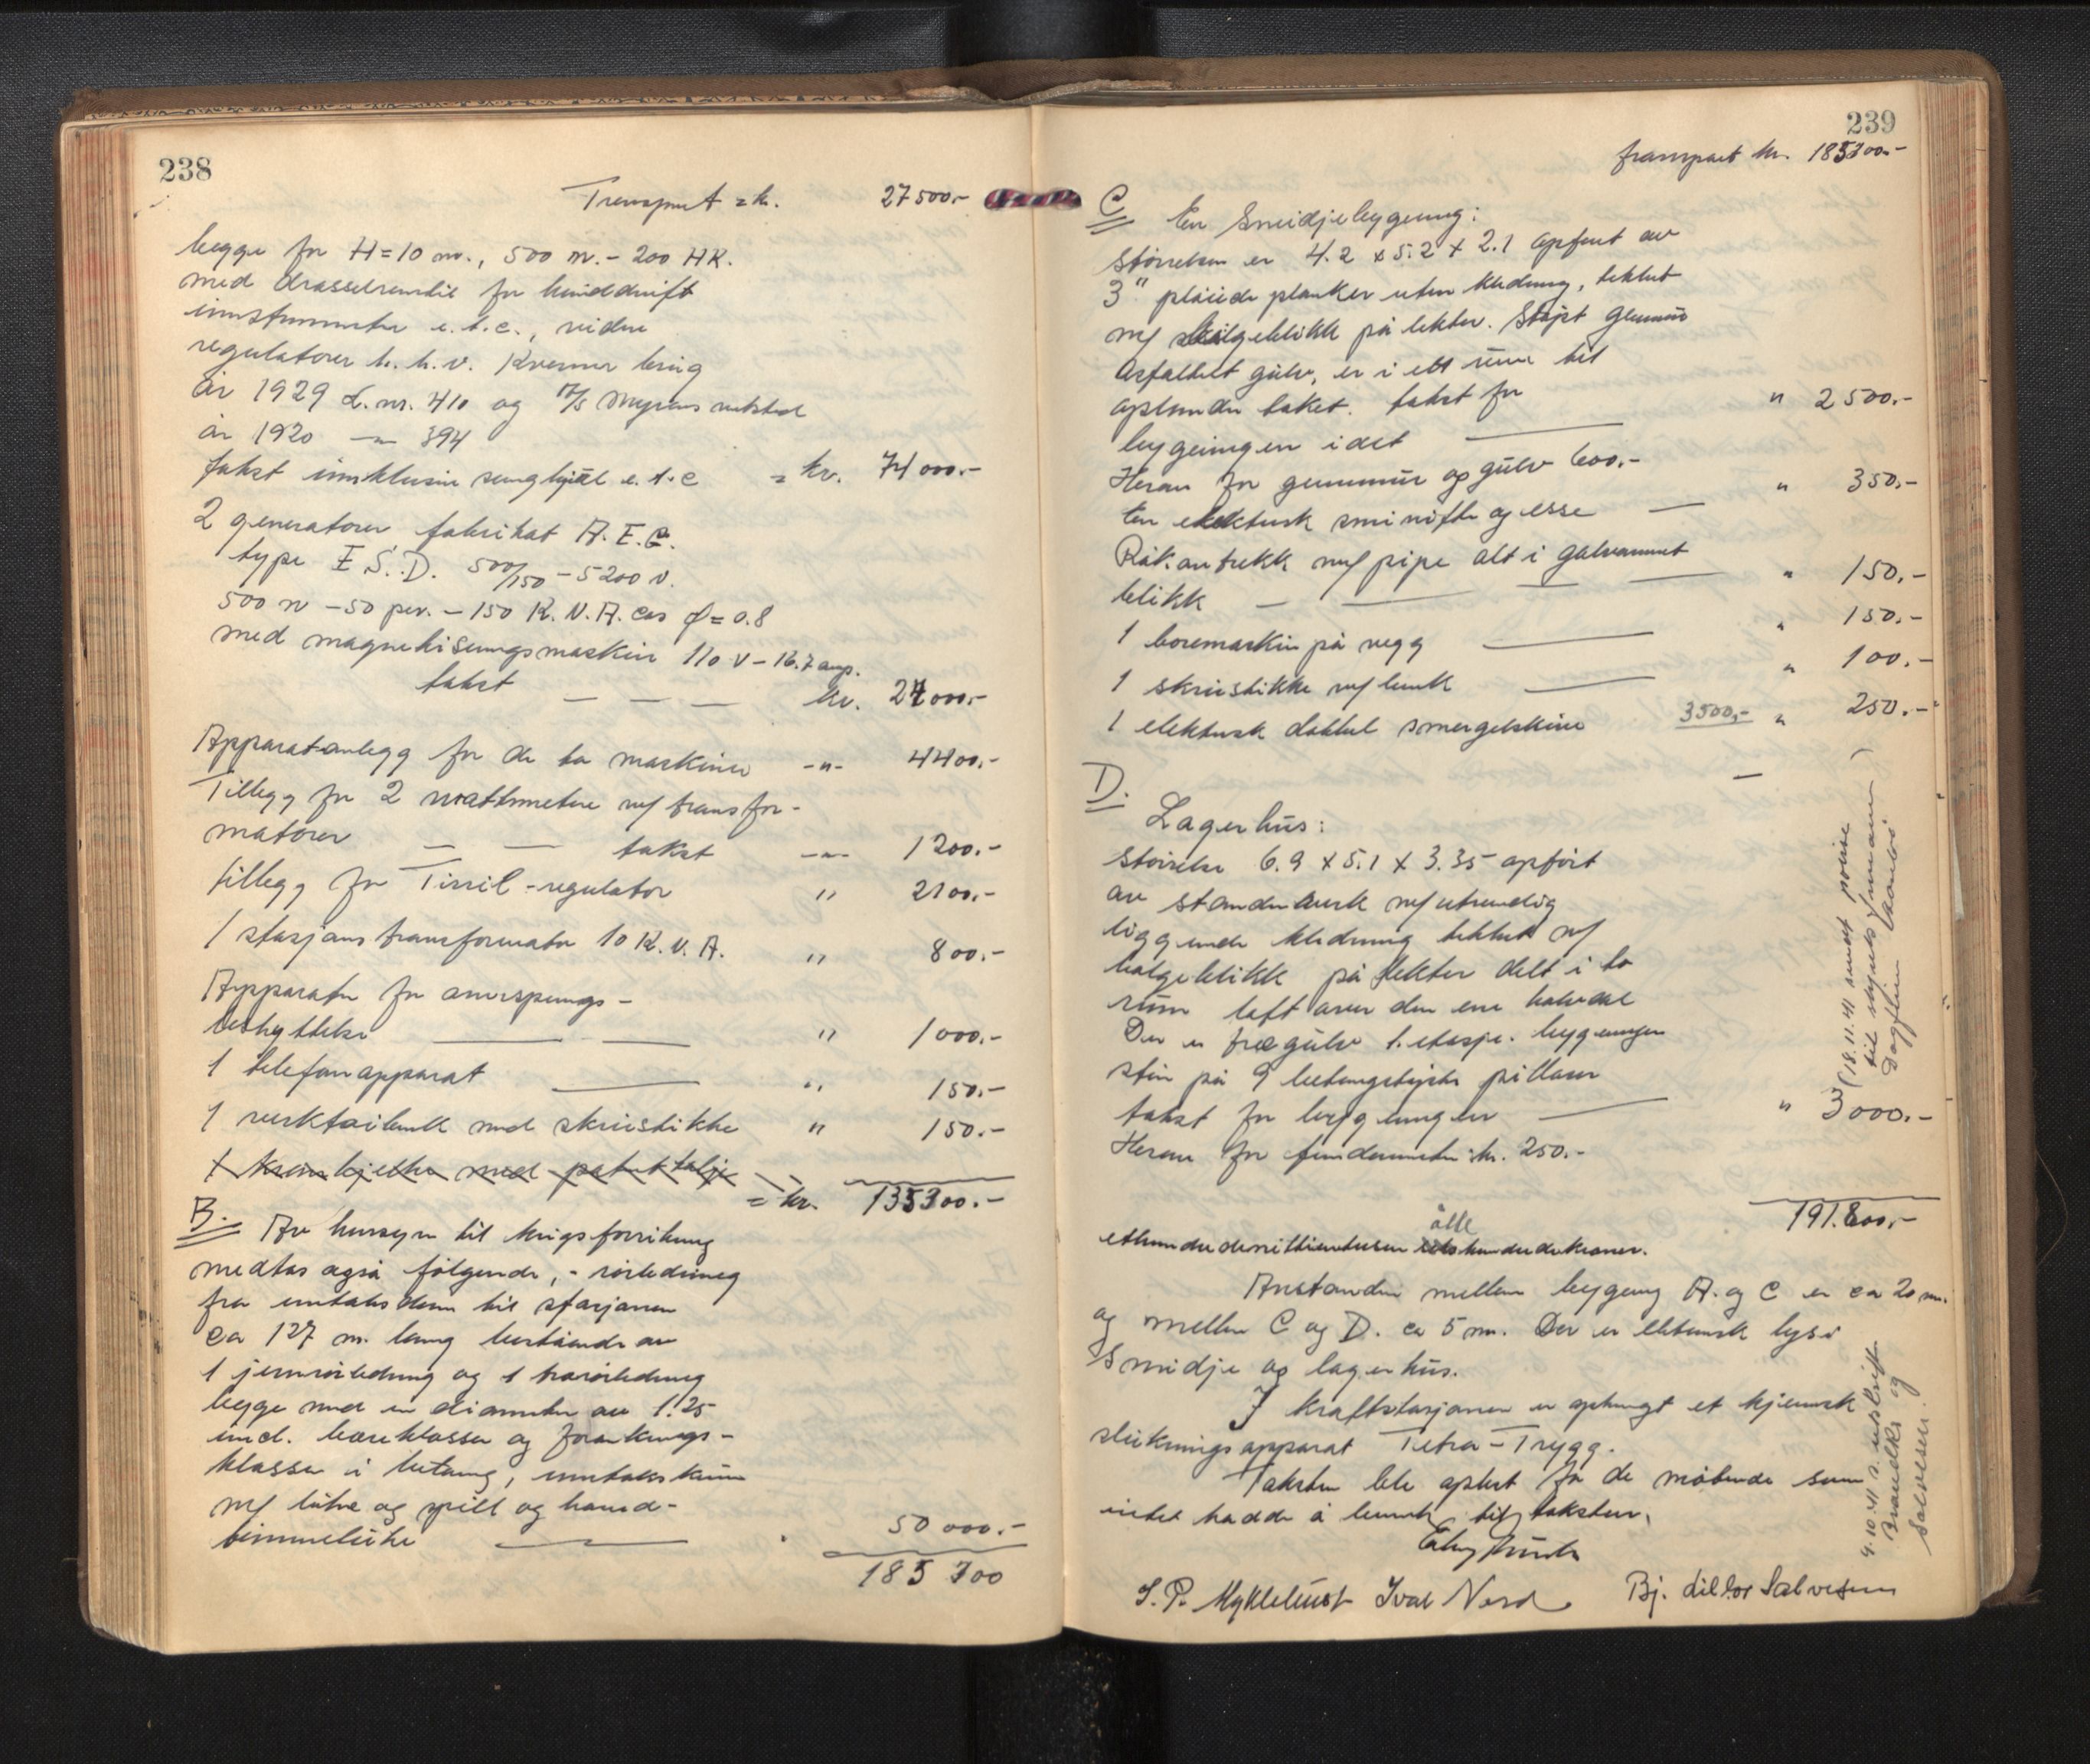 238
Transport = kr. 27500.-
begge for H=10 m., 500 m. - 200 HK.
med drosselventil for hånddrift
instrumenter e.t.c., videre
regulatorer h.h.v. Kværner brug
år 1929 L.nr. 410 og A/S Myrens verksted
år 1920 — 394
takst innklusiv svinghjul e.t.c = kr. 74000.-
2 generatorer fabrikat A.E.G.
type E.S.D. 500/150 - 5200 v.
500 n - 50 per. - 150 K.V.A. cos φ = 0.8
med magnetiseringsmaskin 110 v - 16.7 amp.
takst — — — kr. 24000.-
Apparatanlegg for de to maskiner -"- 4400.-
Tillegg for 2 wattmetere m/ transfor-
matorer — — takst -"- 1200.-
tillegg for Tirril-regulator " 2100.-
1 stasjons transformator 10 K.V.A. " 800.-
Apparater for overspennings-
beskyttelse — — " 1000.-
1 telefonapparat — " 150.-
1 verktøibenk med skruestikke " 150.-
1 kranbjelke med patent talje
= kr. 135300.-
B. Av hensyn til krigsforsikring
medtas også følgende, - rørledning
fra inntaksdam til stasjonen
ca 127 m. lang bestående av
1 jernrørledning og 1 trærørledning
begge med en diameter av 1.25
incl. bæreklosser og forankrings-
klosser i betong, inntakskum
m/ luke og spill og hånd-
tømmeluke — 50000.-
185300
239
Transport kr. 185300.-
C En Smidjebygning:
Størrelsen er 4.2 x 5.2 x 2.1 opført av
3" pløide planker uten kledning, tekket
m/ bølgeblikk på lekter. Støpt grunnmur
Asfaltert gulv, er i ett rum til
opp under taket. takst for
bygningen i det — " 2500.-
Herav for grunnmur og gulv 600.-
En elektrisk smivifte og esse — " 350.-
Røkavtrekk m/ pipe alt i galvanisert
blikk — — — " 150.-
1 boremaskin på vegg — " 150.-
1 skruestikke m/ benk — " 100.-
1 elektrisk dobbel smergelskive 3500,- " 250.-
D.
Lagerhus:
Størrelse 6.9 x 5.1 x 3.35 opført
av standerverk m/ utvendig
liggende kledning tekket m/
bølgeblikk på lekter delt i to
rum loft over den ene halvdel
Der er tregulv 1. etasje. bygningen
står på 9 betongstøpte pillarer
takst for bygningen — " 3000.-
Herav for fundamenter kr. 250.-
191.800,-
åtte
etthundredenittientusen hundredekroner.
Avstanden mellem bygning A. og C er ca 20 m.
og mellem C og D. ca 5 m. Der er elektrisk lys i
Smidje og lagerhus.
I kraftstasjonen er ophengt et kjemisk
slukningsapparat Tetra-Trygg.
Taksten ble oplest for de møtende som
intet hadde å bemerke til taksten.
S. P. Myklebust Ivar Nord Bj. Dillør Salvesen
(18.11.41 sendt polise
til
Dagfinn
9.10.41 s. utskrift
og
Salvesen.